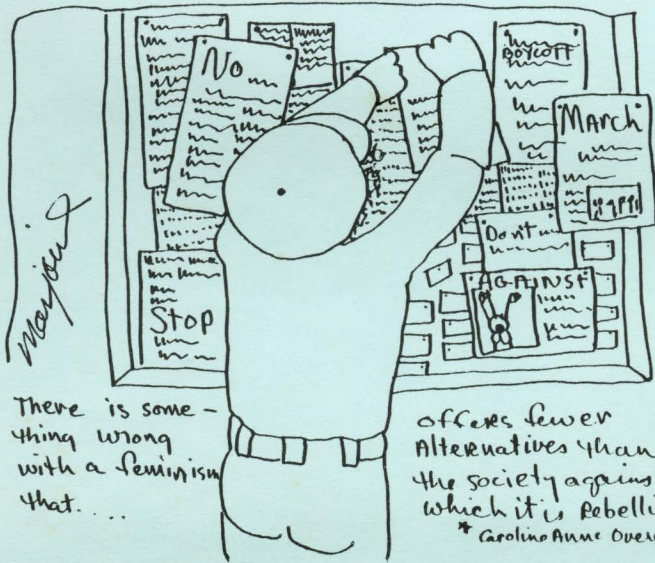 No
BOYCOTT
MARCH
Don't
AGAINST
Stop
There is some-
thing wrong
with a feminism
that....
offers fewer
Alternatives than
the society agains
which it is Rebelli
* Caroline Anne Over